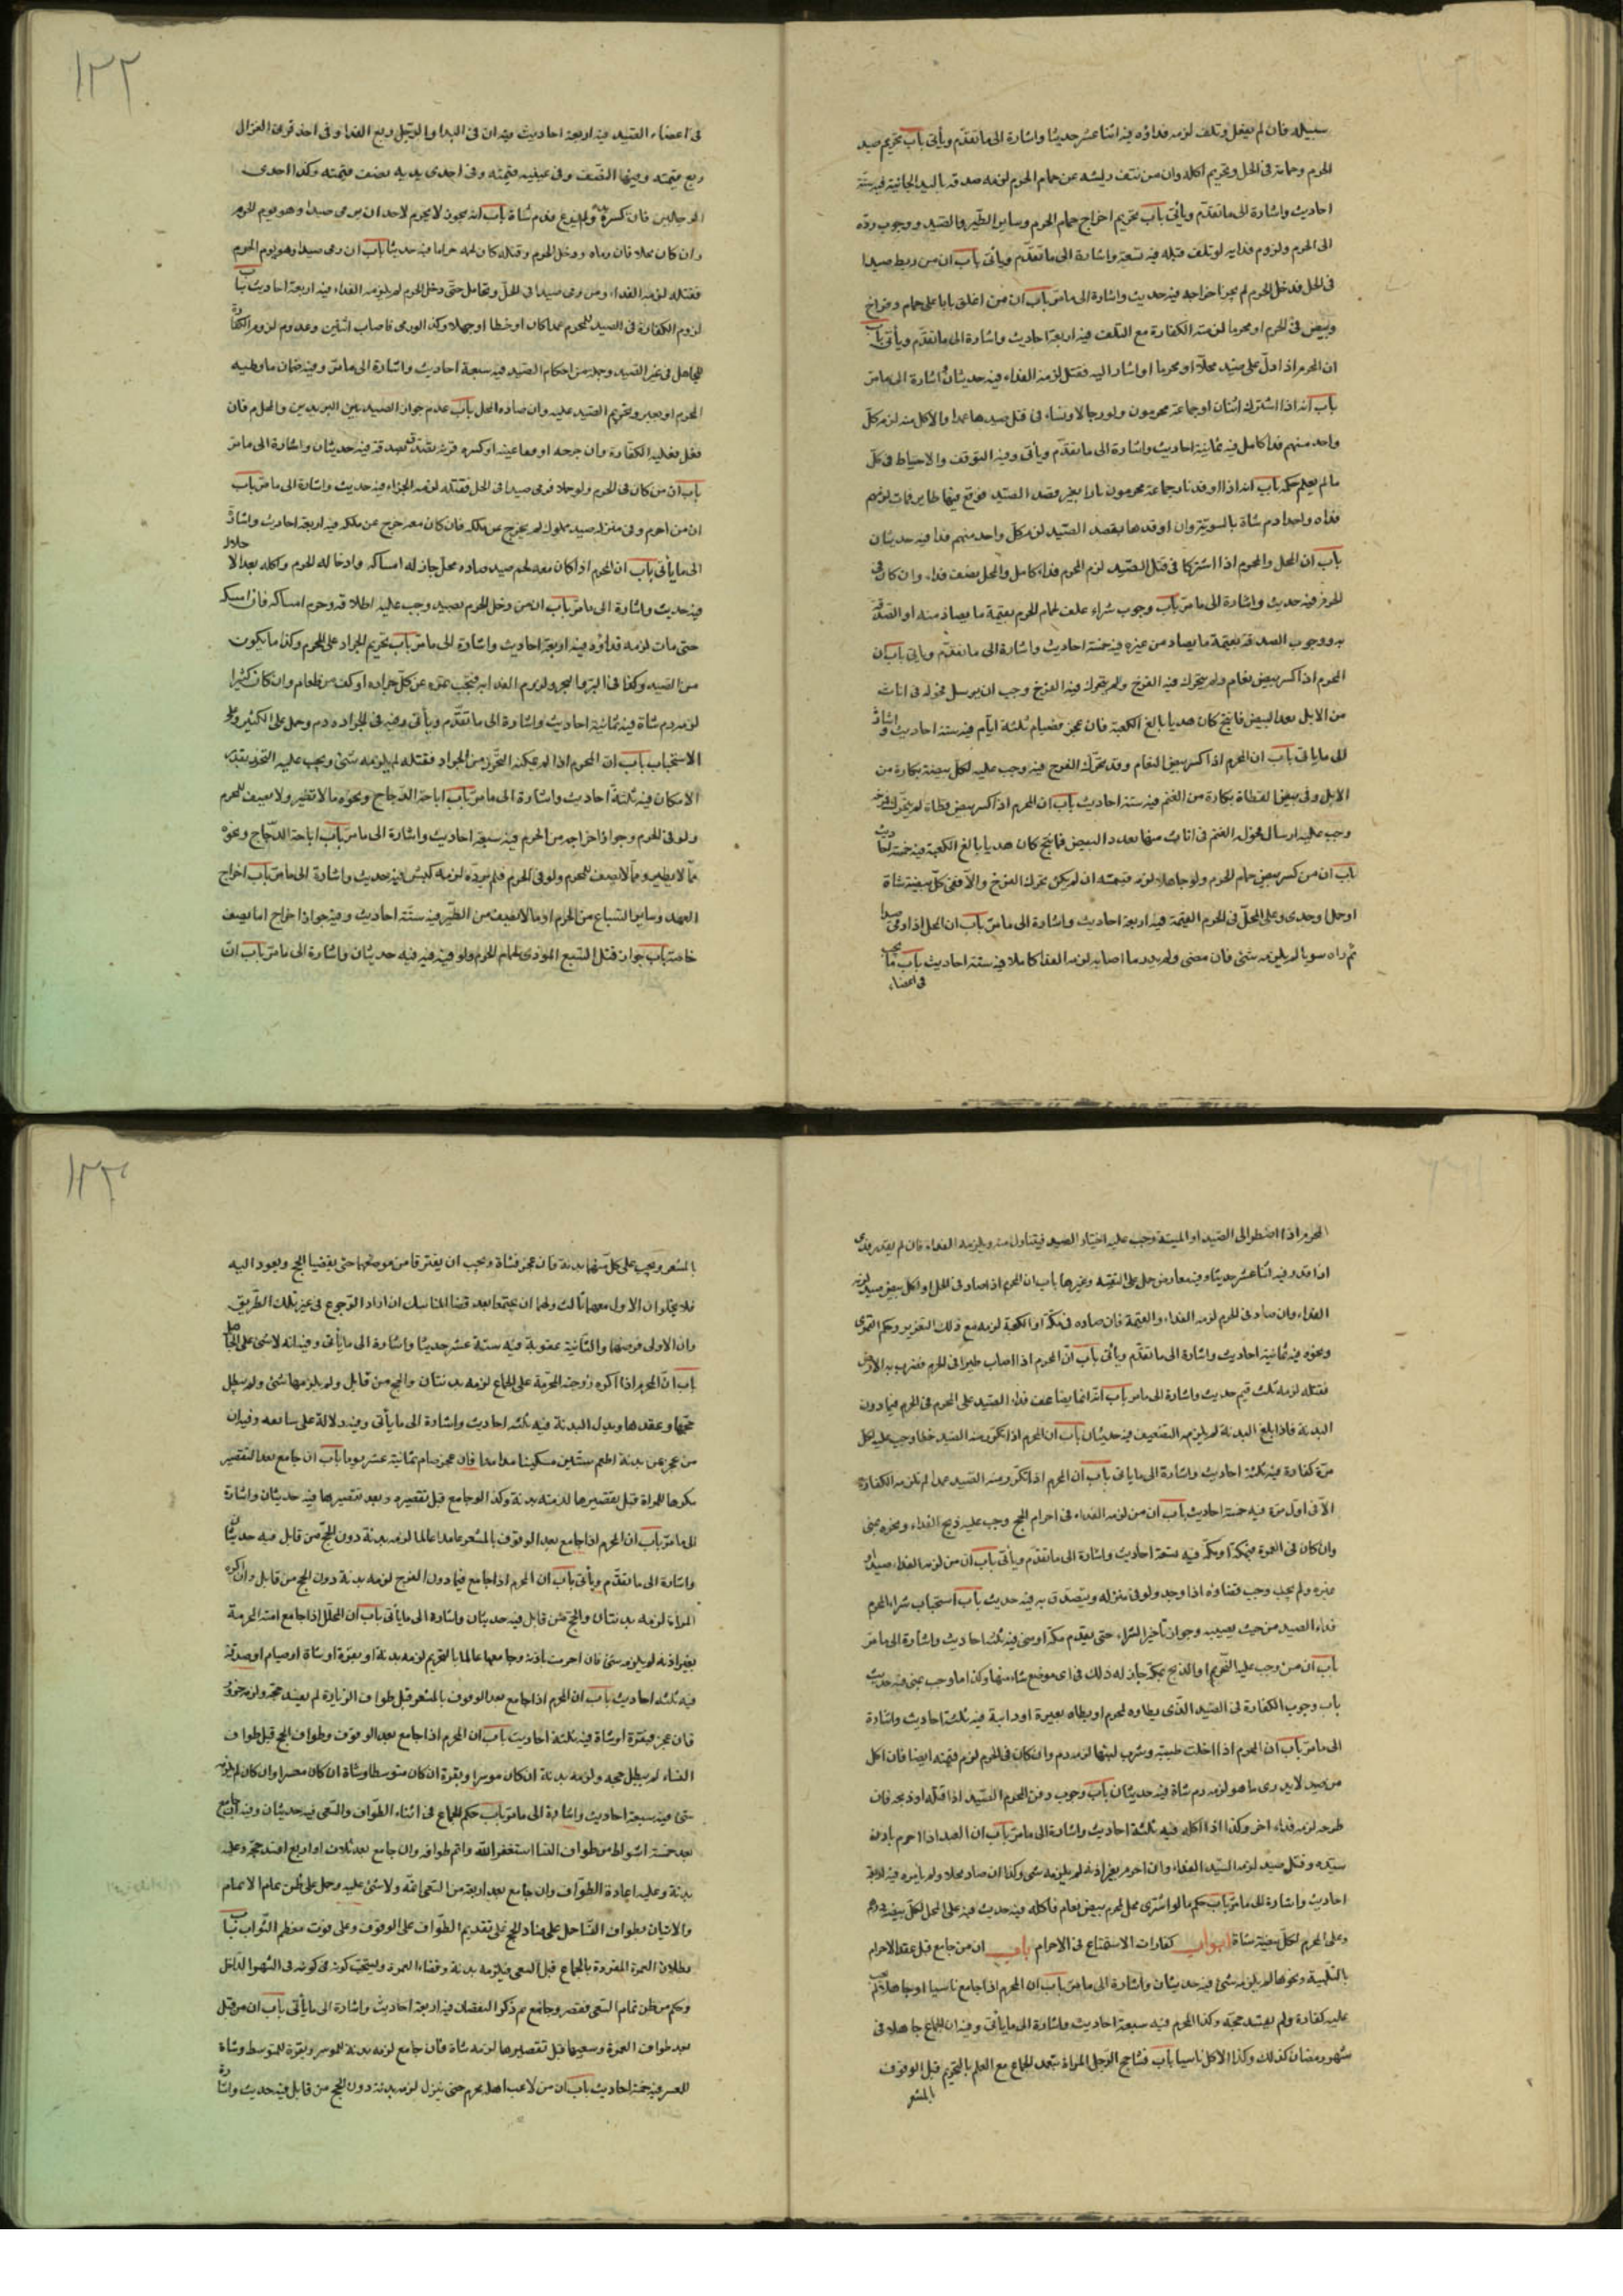 سبيله فان لم يفعل وتلف لزمه فداؤه فيه اثنا عشر حديثا واشارة الى ما تقدّم ويأتى باب تحريم صيد
الحرم وحمامه فى الحل وتحريم اكله وان من نتف ريشه عن حمام الحرم لزمه صدقه باليد الجانية فيه ستّة
احاديث واشارة الى ما تقدّم ويأتى باب تحريم اخراج حمام الحرم وساير الطّير والصّيد ووجوب ردّه
الى الحرم ولزوم فدائه لو تلف قبله فيه تسعة واشارة الى ما تقدّم ويأتى باب ان من ربط صيدا
فى الحل فدخل الحرم لم يجز اخراجه فيه حديث واشارة الى ما مرّ باب ان من اغلق بابا على حمام وفراخ
وبيض فى الحرم او محرما لزمته الكفارة مع التلف فيه اربعة احاديث واشارة الى ما تقدّم ويأتى باب
ان المحرم اذا دلّ على صيد محلّا او محرما او اشار اليه فقتل لزمه الفداء فيه حديثان واشارة الى ما مرّ
باب انه اذا اشترك اثنان او جماعة محرمون ولو رجالا ونساء فى قتل صيد عمدا والاكل منه لزم كلّ
واحد منهم فداء كامل فيه ثمانية احاديث واشارة الى ما تقدّم ويأتى وفيه التوقف والاحتياط فى كلّ
ما لم يعلم حكمه باب انه اذا اوقد نارا جماعة محرمون بغير قصد الصّيد فوقع فيها طاير فمات لزمهم
فداء واحد دم شاة بالسويّة وان اوقدها بقصد الصّيد لزم كلّ واحد منهم فداء فيه حديثان
باب ان المحل والمحرم اذا اشتركا فى قتل الصّيد لزم المحرم فداء كامل والمحل نصف فداء وان كان فى
الحرم فيه حديث واشارة الى ما مرّ باب وجوب شراء علف لحمام الحرم بقيمة ما يصاد منه او الصّدقة
به ووجوب الصدقة بقيمة ما يصاد من غيره فيه خمسة احاديث واشارة الى ما تقدّم ويأتى باب ان
المحرم اذا كسر بيض نعام ولم يتحرك فيه الفرخ وجب ان يرسل فحولة فى اناث
من الابل بعدد البيض فما نتج كان هديا بالغ الكعبة فان عجز فصيام ثلثة ايّام فيه ستة احاديث واشارة
الى ما يأتى باب ان المحرم اذا كسر بيض النعام وقد تحرّك الفرخ فيه وجب عليه لكلّ بيضة بكارة من
الابل وفى بيض القطاة بكارة من الغنم فيه ستة احاديث باب ان المحرم اذا كسر بيض قطاة لم يتحرّك فرخه
وجب عليه ارسال فحولة الغنم فى اناث منها بعدد البيض فما نتج كان هديا بالغ الكعبة فيه خمسة احاديث
باب ان من كسر بيض حمام الحرم ولو جاهلا لزمه قيمته ان لم يكن تحرك الفرخ والّا ففى كلّ بيضة شاة
او حمل او جدى وعلى المحلّ فى الحرم القيمة فيه اربعة احاديث واشارة الى ما مرّ باب ان المحل اذا رمى صيدا
ثم راه سويا لم يلزمه شىء فان مضى ولم يدر ما اصابه لزمه الفداء كاملا فيه ستة احاديث باب ما يجب
فى اعضاء
١٢٢
فى اعضاء الصّيد فيه اربعة احاديث وفيه ان فى اليد او الرّجل ربع الفداء وفى احد قرنى الغزال
ربع قيمته وفيهما النّصف وفى عينيه قيمته وفى احدى يديه نصف قيمته وكذا احدى
الرجلين فان كسره ولم يرع فدم شاة باب انه يجوز لا يحرم لاحد ان يرمى صيدا وهو يوم الحرم
وان كان محلا فان رماه ودخل الحرم وقتله كان لحمه حراما فيه حديثا باب ان رمى صيدا وهو يوم الحرم
فقتله لزمه الفداء ومن رمى صيدا فى الحلّ وتحامل حتّى دخل الحرم لم يلزمه الفداء فيه اربعة احاديث باب
لزوم الكفارة فى الصيد للمحرم عمدا كان او خطا او جهلا وكذا لو رمى فاصاب اثنين وعدم لزوم الكفارة
للجاهل فى غير الصّيد وجملة من احكام الصّيد فيه سبعة احاديث واشارة الى ما مرّ وفيه ضمان ما وطئه
المحرم او بعيره وتحريم الصّيد عليه وان صاده المحل باب عدم جواز الصيد بين البريدين والحرم فان
فعل فعليه الكفارة وان جرحه او فقا عينه او كسر قرنه تصدّق بصدقة فيه حديثان واشارة الى ما مرّ
باب ان من كان فى الحرم ولو محلا فرمى صيدا فى الحل فقتله لزمه الجزاء فيه حديث واشارة الى ما مرّ باب
ان من احرم وفى منزله صيد مملوك لم يخرج عن ملكه فان كان معه خرج عن ملكه فيه اربعة احاديث واشارة
الى ما يأتى باب ان المحرم اذا كان معه لحم صيد صاده محل جاز له امساكه وادخاله الحرم واكله بعد الاحلال
فيه حديث واشارة الى ما مرّ باب ان من دخل الحرم بصيد وجب عليه اطلاقه وحرم امساكه فان امسكه
حتى مات لزمه فداؤه فيه اربعة احاديث واشارة الى ما مرّ باب تحريم الجراد على المحرم وكذا ما يكون
من الصّيد وكذا فى البرّ والبحر ولزوم الفداء به فيجب تمرة عن كلّ جرادة او كف من طعام وان كان كثيرا
لزمه دم شاة فيه ثمانية احاديث واشارة الى ما تقدّم ويأتى وفيه فى الجراده دم وحمل على الكثير وعلى
الاستحباب باب ان المحرم اذا لم يمكنه التحرّز من الجراد فقتله لم يلزمه شىء ويجب عليه التحرّز بقدر
الامكان فيه ثلثة احاديث واشارة الى ما مرّ باب اباحة الدّجاج ونحوه ما لا تطير ولا تصف للمحرم
ولو فى الحرم وجواز اخراجه من الحرم فيه سبعة احاديث واشارة الى ما مرّ باب اباحة الدّجاج ونحوه
ممّا لا يطير وممّا لا يصف للمحرم ولو فى الحرم فيه حديث واشارة الى ما مرّ باب اخراج
الفهد وساير السّباع من الحرم او ما لا يصف من الطّير فيه ستّة احاديث وفيه جواز اخراج اما يصف
خاصة باب جواز قتل السّبع الموذى لحمام الحرم ولو فيه فيه حديثان واشارة الى ما مرّ باب انّ
المحرم اذا اضطر الى الصّيد او الميتة وجب عليه اختيار الصيد فيتناول منه ويلزمه الفداء فان لم يقدر فدى
اذا قدر فيه اثنا عشر حديثا وفيه معارض حمل على التقيّة وغيرها باب ان المحرم اذا صاد فى الحل او اكل بيض صيد لزمه
الفداء وان صاد فى الحرم لزمه الفداء والقيمة فان صاده فى مكّة او الكعبة لزمه مع ذلك التعزير وحكم القمرى
ونحوه فيه ثمانية احاديث واشارة الى ما تقدّم ويأتى باب انّ المحرم اذا اصاب طيرا فى الحرم فضرب به الارض
فقتله لزمه ثلث قيم حديث واشارة الى ما مرّ باب انّه انما يضاعف فداء الصّيد على المحرم فى الحرم فيما دون
البدنة فاذا بلغ البدنة لم يلزمه التضعيف فيه حديثان باب ان المحرم اذا تكرّر منه الصّيد خطا وجب عليه لكل
مرّة كفارة فيه ثلثة احاديث واشارة الى ما ياتى باب ان المحرم اذا تكرّر منه الصّيد عمدا لم يلزمه الكفارة
الّا فى اول مرّة فيه خمسة احاديث باب ان من لزمه الفداء فى احرام الحج وجب عليه ذبح الفداء ونحره بمنى
وان كان فى العمرة فبمكّة فيه تسعة احاديث واشارة الى ما تقدّم ويأتى باب ان من لزمه الفداء
وغيره ولم يجب وجب قضاؤه اذا وجد ولو فى منزله ويتصدّق به فيه حديث باب استحباب شراء المحرم
فداء الصيد من حيث يصيب وجواز تأخير الشراء حتى يقدم مكّة او منى فيه ثلثة احاديث واشارة الى ما مرّ
باب ان من وجب عليه النّحر او الذبح بمكّة جاز له ذلك فى اى موضع شاء منها وكذا ما وجب بمنى فيه حديث
باب وجوب الكفارة فى الصّيد الذّى يطاوه المحرم او يطاه بعيره او دابّة فيه ثلثة احاديث واشارة
الى ما مرّ باب ان المحرم اذا احلب ظبية وشرب لبنها لزمه دم وان كان فى الحرم لزم قيمته ايضا فان اكل
من صيد لا يدرى ما هو لزمه دم شاة فيه حديثان باب وجوب دفن المحرم الصّيد اذا قتله او ذبحه فان
طرحه لزمه فداء اخر وكذا اذا اكله فيه ثلثة احاديث واشارة الى ما مرّ باب ان العبد اذا احرم باذن
سيّده وقتل صيد لزم السّيد الفداء وان احرم بغير اذنه لم يلزمه شىء وكذا ان صاد محلا ولم يأمره فيه ثلاثة
احاديث واشارة الى ما مرّ باب حكم ما لو اشترى محل لمحرم بيض نعام فاكله فيه حديث فيه على المحل لكلّ بيضة درهم
وعلى المحرم لكلّ بيضة شاة ابواب كفارات الاستمتاع فى الاحرام باب ان من جامع قبل عقد الاحرام
بالتّلبية ونحوها لم يلزمه شىء فيه حديثان واشارة الى ما مرّ باب ان المحرم اذا جامع ناسيا او جاهلا لم يجب
عليه كفارة ولم يفسد حجّه وكذا المحرم فيه سبعة احاديث واشارة الى ما يأتى وفيه ان الجماع جاهلا فى
شهر رمضان كذلك وكذا الاكل ناسيا باب فساد حج الرّجل المراة بتعمد الجماع مع العلم بالتحريم قبل الوقوف
بالمشعر
١٢٣
بالمشعر ويجب على كل منهما بدنة فان عجز فشاة ويجب ان يفترقا من موضعهما حتى يقضيا الحج ويعودا اليه
فلا يخلوان الا ومعهما ثالث ولهما ان يجتمعا بعد قضاء المناسك ان ارادا الرّجوع فى غير تلك الطّريق
وان الاولى فرضهما والثّانية عقوبة فيه ستة عشر حديثا واشارة الى ما يأتى وفيه انه لا شىء على الجاهل
باب انّ المحرم اذا اكره زوجته المحرمة على الجماع لزمه بدنتان والحج من قابل ولم يلزمها شىء ولم يبطل
حجّها وعقدها وبدل البدنة فيه ثلثة احاديث واشارة الى ما يأتى وفيه دلالة على سابعه وفيه ان
من عجز عن بدنة اطعم ستّين مسكينا مدا مدا فان عجز صام ثمانية عشر يوما باب ان جامع بعد التّقصير
مكرها للمراة قبل تقصيرها لزمته بدنة وكذا لو جامع قبل تقصيره وبعد تقصيرها فيه حديثان واشارة
الى ما مرّ باب ان المحرم اذا جامع بعد الوقوف بالمشعر عامدا عالما لزمه بدنة دون الحجّ من قابل فيه حديثان
واشارة الى ما تقدّم ويأتى باب ان المحرم اذا جامع فيما دون الفرج لزمه بدنة دون الحج من قابل وان اكره
المراة لزمه بدنتان والحجّ من قابل فيه حديثان واشارة الى ما يأتى باب ان المحلّ اذا جامع امته المحرمة
بغير اذنه لم يلزمه شىء فان احرمت باذنه وجامعها عالما بالتحريم لزمه بدنة او بقرة او شاة او صيام او صدقة
فيه ثلثة احاديث باب ان المحرم اذا جامع بعد الوقوف بالمشعر قبل طواف الزيارة لم يفسد حجّه ولزمه جزور
فان عجز فبقرة او شاة فيه ثلثة احاديث باب ان المحرم اذا جامع بعد الوقوف وطواف الحج قبل طواف
النساء لم يبطل حجه ولزمه بدنة ان كان موسرا وبقرة ان كان متوسطا وشاة ان كان معسرا وان كان لم يلزمه
شىء فيه سبعة احاديث واشارة الى ما مرّ باب حكم الجماع فى اثناء الطّواف والسّعى فيه حديثان وفيه ان جامع
بعد خمسة اشواط من طواف النساء استغفر الله واتم طوافه وان جامع بعد ثلاث او اربع افسد حجّه وعليه
بدنة وعليه اعادة الطّواف وان جامع بعد اربعة من السّعى اتمّه ولا شىء عليه وحمل على ظن تمام الاتمام
والاتيان بطواف النّساء حمل على فساد الحج على تقديم الطّواف على الوقوف وعلى فوت معظم الثّواب باب
بطلان العمرة المفردة بالجماع قبل السعى فيلزمه بدنة وقضاء العمرة ويستحب كونه فى الشّهر الداخل
وحكم من ظن تمام السّعى فقصر وجامع ثم ذكر النقصان فيه اربعة احاديث واشارة الى ما يأتى باب ان من قبّل
بعد طواف العمرة وسعيها قبل تقصيرها لزمه شاة فان جامع لزمه بدنة للموسر وبقرة للمتوسط وشاة
للمعسر فيه خمسة احاديث باب ان من لاعب اهله محرم حتى ينزل لزمه بدنة دون الحج من قابل فيه حديث واشارة